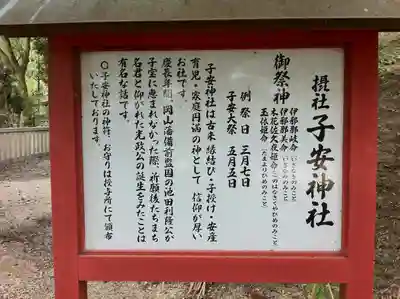 摂社 子安神社
御祭神
伊邪那岐命(いざなぎのみこと)
伊邪那美命(いざなみのみこと)
木花佐久夜姫命(このはなさくやひめのみこと)
玉依姫命(たまよりひめのみこと)
例祭日 三月七日
子安大祭 五月五日
子安神社は古来、縁結び・子授け・安産
育児・家庭円満の神として信仰が厚い
お社です。
慶長年間、岡山藩備前監国の池田利隆公が
子宝に恵まれなかった際、祈願後たちまち
名君と仰がれた光政公の誕生をみたことは
有名な話です。
〇子安神社の神符、お守りは授与所にて頒布
いたしております。